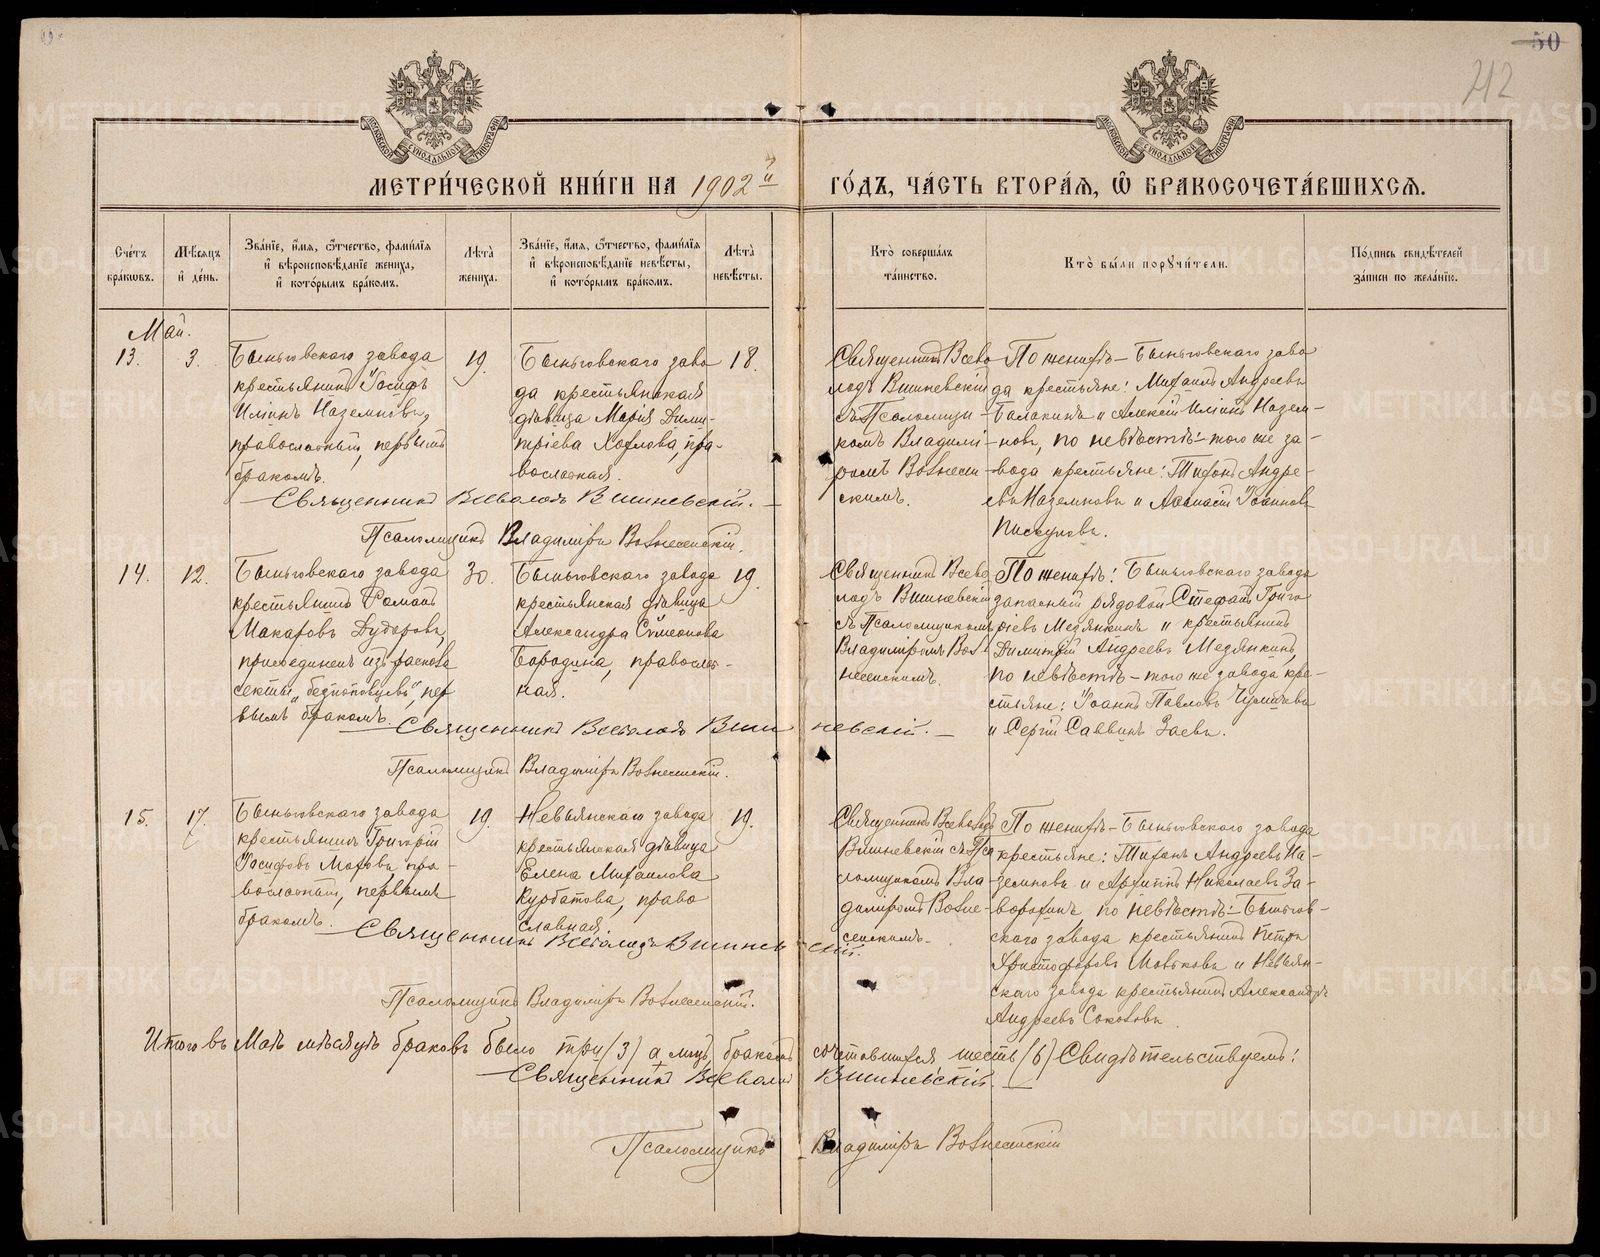 50
212
МЕТРИЧЕСКОЙ КНИГИ НА 1902й ГОДЪ, ЧАСТЬ ВТОРАЯ, Ѿ БРАКОСОЧЕТАВШИХСЯ.
Счетъ браковъ.
Мѣсяцъ и день.
Званіе, имя, отчество, фамилія и вѣроисповѣданіе жениха, и которымъ бракомъ.
Лѣта жениха.
Званіе, имя, отчество, фамилія и вѣроисповѣданіе невѣсты, и которымъ бракомъ.
Лѣта невѣсты.
Кто совершалъ таинство.
Кто были поручители.
Подпись свидѣтелей записи по желанію.
Май.
13.
3.
Быньговскаго завода
крестьянинъ Іосифъ
Иліинъ Наземновъ,
православный, первымъ
бракомъ.
19.
Быньговскаго заво
да крестьянская
дѣвица Марія Дими-
тріева Хохлова, пра-
вославная.
18.
Священникъ Всево
лодъ Вишневскій
съ Псаломщи-
комъ Владимі-
ромъ Вознесен
скимъ.
По женихѣ - Быньговскаго заво
да крестьяне: Михаилъ Андреевъ
Балакинъ и Алексій Иліинъ Назем-
новъ, по невѣстѣ - того же за-
вода крестьяне: Тихонъ Андре-
евъ Наземновъ и Аѳанасій Іоанновъ
Пискуновъ.
Священникъ Всеволодъ Вишневскій.
Псаломщикъ Владиміръ Вознесенскій.
14.
12.
Быньговскаго завода
крестьянинъ Романъ
Макаровъ Дударовъ,
присоединенъ изъ раскола
секты "безпоповцевъ", пер
вымъ бракомъ.
30.
Быньговскаго завода
крестьянская дѣвица
Александра Симеонова
Бородина, православ-
ная.
19.
Священникъ Всево
лодъ Вишневскій
съ Псаломщикомъ
Владиміромъ Воз
несенскимъ.
По женихѣ: Быньговскаго завода
запасный рядовой Стефанъ Григо
ріевъ Медянкинъ и крестьянинъ
Димитрій Андреевъ Медянкинъ,
по невѣстѣ - того же завода кре-
стьяне: Іоаннъ Павловъ
и Сергій Саввинъ Заевъ.
Священникъ Всеволодъ Вишневскій.
Псаломщикъ Владиміръ Вознесенскій.
15.
17.
Быньговскаго завода
крестьянинъ Григорій
Іосифовъ пра-
вославный, первымъ
бракомъ.
19.
Невьянскаго завода
крестьянская дѣвица
Елена Михаилова
Курбатова, право
славная.
19.
Священникъ Всеволодъ
Вишневскій съ Пса
ломщикомъ Вла-
диміромъ Возне-
сенскимъ.
По женихѣ - Быньговскаго завода
крестьяне: Тихонъ Андреевъ На-
земновъ и Архиппъ Николаевъ За-
ворохинъ, по невѣстѣ - Быньгов-
скаго завода крестьянинъ Петръ
Христофоровъ и Невьян-
скаго завода крестьянинъ Александръ
Андреевъ Соколовъ.
Священникъ Всеволодъ Вишневскій.
Псаломщикъ Владиміръ Вознесенскій.
Итого въ Маѣ мѣсяцѣ браковъ было три (3) а лицъ бракосочетавшихся шесть (6) Свидѣтельствуемъ:
Священникъ Всеволодъ Вишневскій.
Псаломщикъ Владиміръ Вознесенскій
METRIKI.GASO-URAL.RU